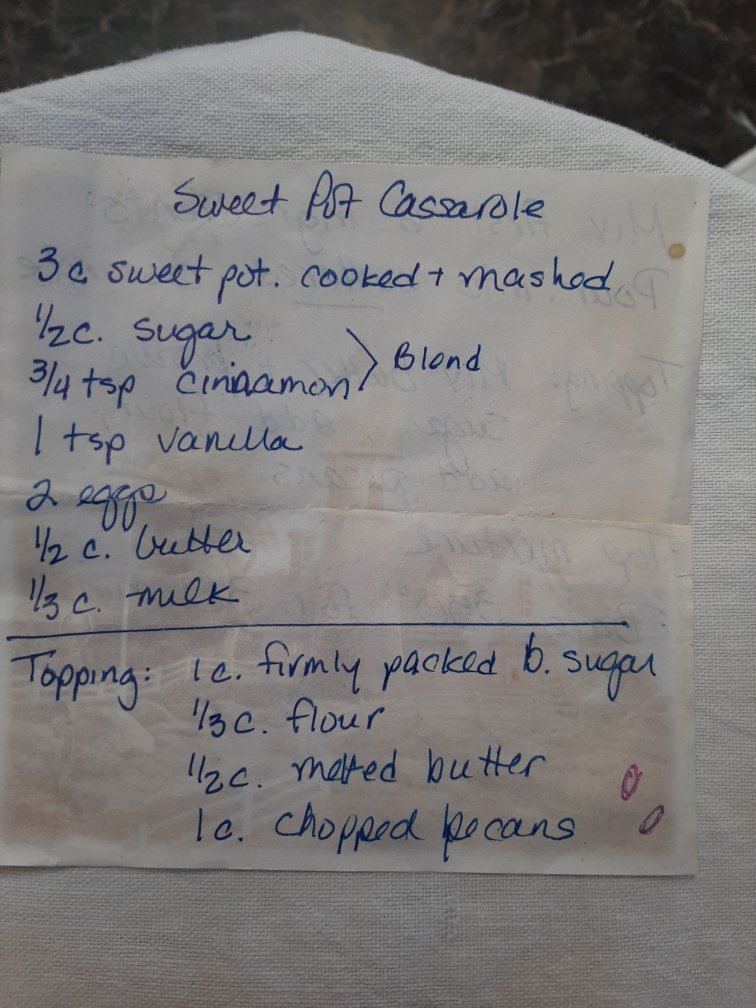 Sweet Pot Cassarole
3 c sweet pot. cooked + mashed
1/2 c. sugar
3/4 tsp cinnamon > Blend
1 tsp vanilla
2 eggs
1/2 c. butter
1/3 c. milk
Topping: 1 c. firmly packed b. sugar
1/3 c. flour
1/2 c. melted butter
1 c. chopped pecans